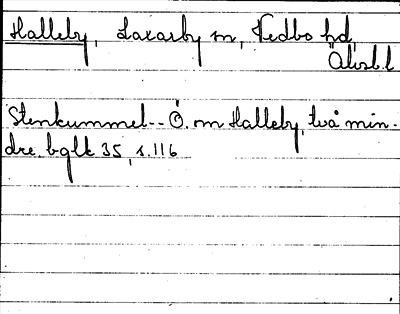 Halleby, Laxarby sn, Vedbo hd,
Älvsb.l
Stenkummel -- Ö. om Halleby, två min-
dre. bglk 35, s.116